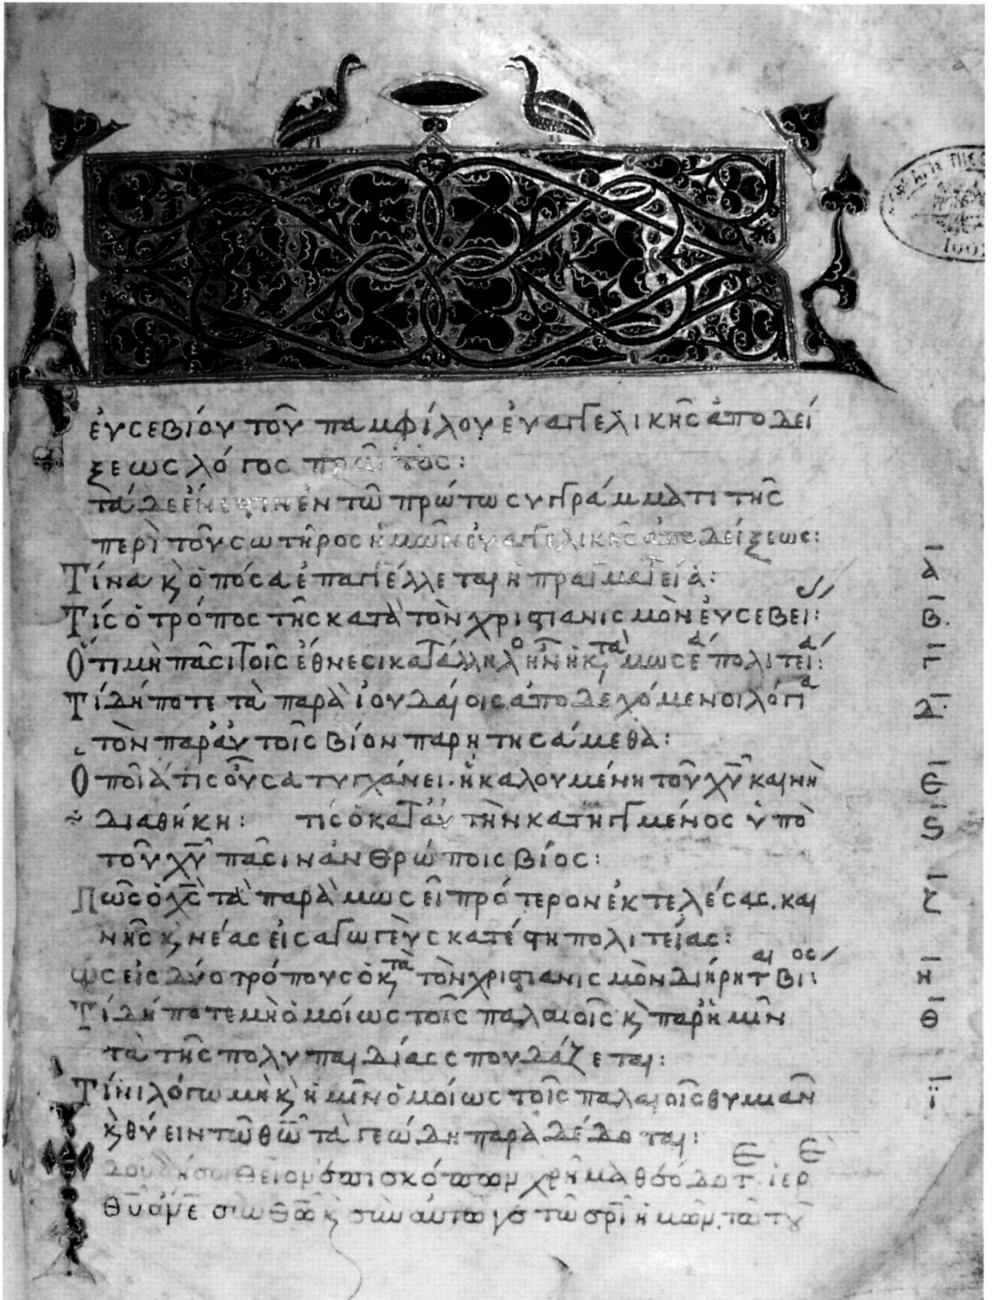 εὐσεβίου τοῦ παμφίλου εὐαγγελικῆς ἀποδεί
ξεως λόγος πρῶτος:
τάδε ἔνεστιν ἐν τῶ πρώτω συγγράμματι τῆς
περὶ τοῦ σωτῆρος ἡμῶν εὐαγγελικῆς ἀποδείξεως:
Τίνα κ̀ ὁπόσα ἐπαγγέλλεται ἡ πραγματεία: α
Τίς ὁ τρόπος τῆς κατὰ τὸν χριστιανισμὸν εὐσεβεί: β
Ὅτι μὴ πᾶσι τοῖς ἔθνεσι κατάλληλο ἦν ἡ κτὰ μωσέα πολιτεία: γ
Τί δήποτε τὰ παρὰ ἰουδαίοις ἀποδεχόμενοι λόγια δ
τὸν παρ' αὐτοῖς βίον παρητησάμεθα:
Ὁποία τίς οὖσα τυγχάνει ἡ καλουμένη τοῦ χῦ καινὴ ε
διαθήκη: τίς ὁ κατ' αὐτὴν κατηγγελμένος ὑπὸ ς
τοῦ χῦ πᾶσιν ἀνθρώποις βίος:
Πῶς ὁ χς τὰ παρὰ μωσεῖ πρότερον ἐκτελέσας, και ζ
νῆς κ̀ νέας εἰσαγωγεὺς κατέστη πολιτείας:
ὡς εἰς δύο τρόπους ὁ κτὰ τὸν χριστιανισμὸν διήρηται βίος: η
Τί δήποτε μὴ ὁμοίως τοῖς παλαιοῖς κ̀ παρ' ἡμῖν θ
τὰ τῆς πολυπαιδίας σπουδάζεται:
Τίνι λόγω μὴ κ̀ ἡμῖν ὁμοίως τοῖς παλαιοῖς θυμιᾶν ι
κ̀ θύειν τῶ θῶ τὰ γεώδη παραδέδοται: